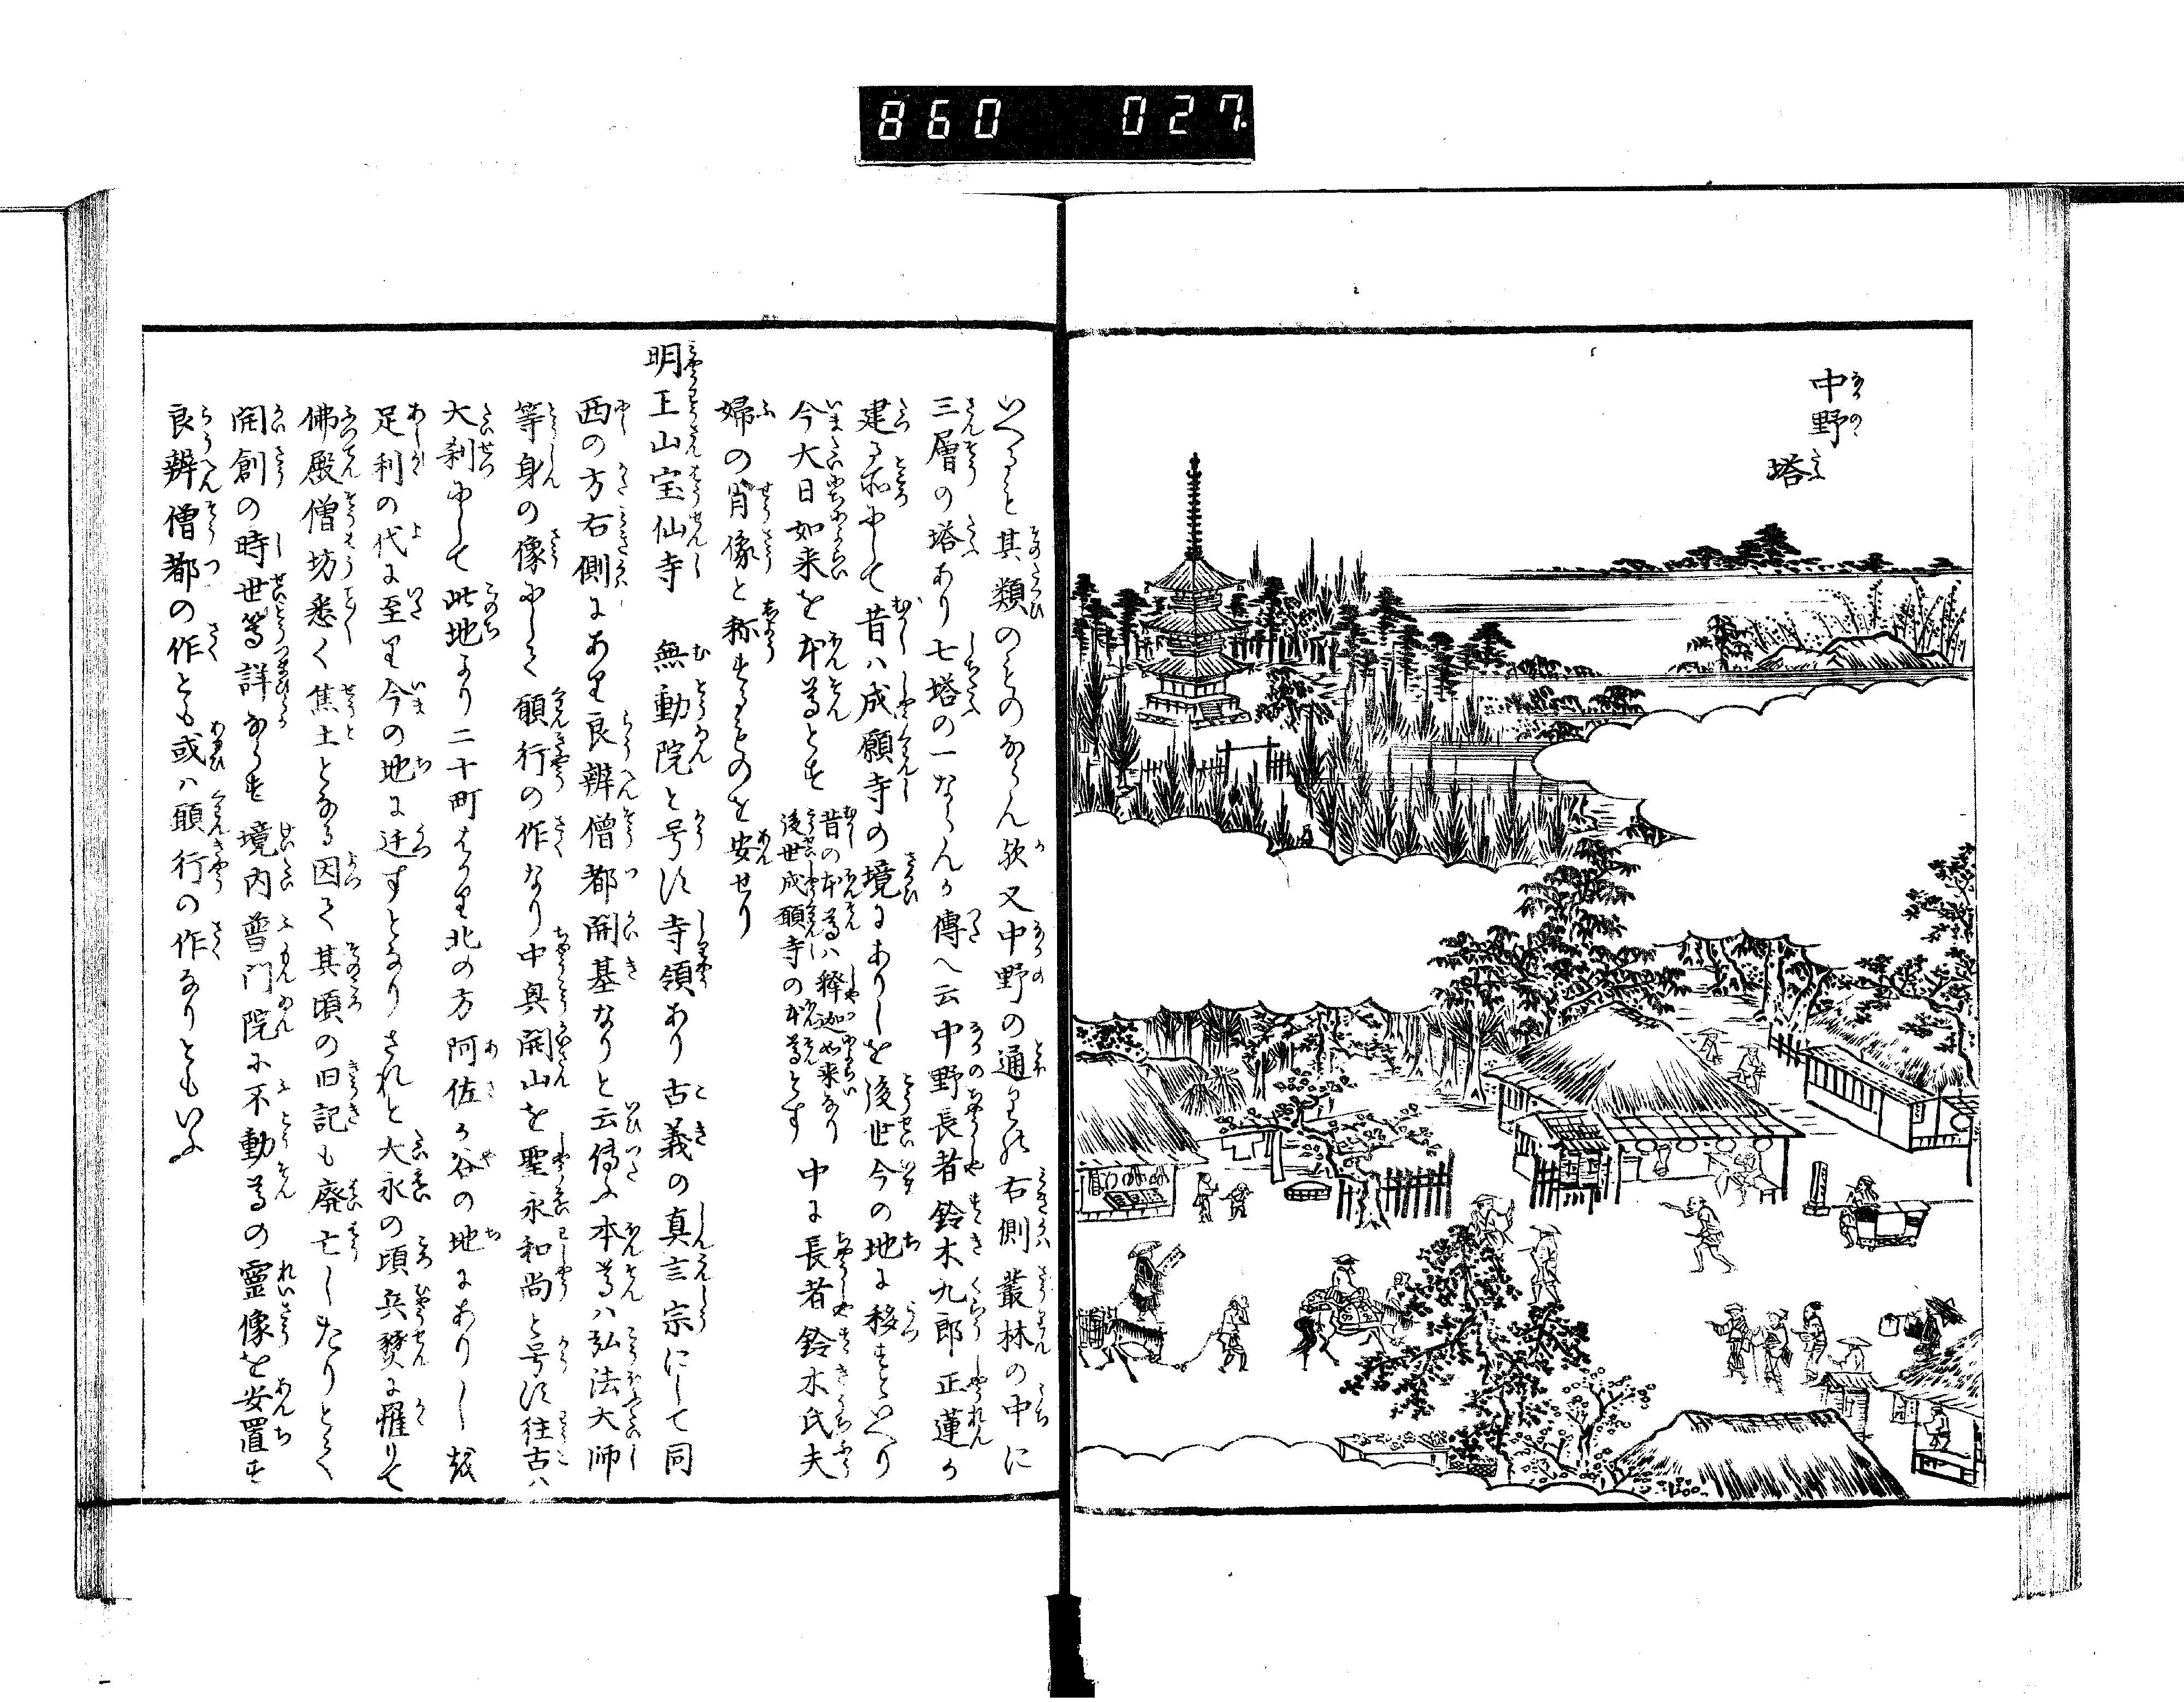 860 027
中野
塔
いへると其類のものならん歟又中野の通り右側叢林の中に
三層の塔あり七塔の一ならんか傳へ云中野長者鈴木九郎正蓮か
建る所にして昔ハ成願寺の境にありしを後世今の地に移すといへり
今大日如来を本尊とす
昔の本尊ハ釋迦如来なり
後世成願寺の本尊とす
中に長者鈴木氏夫
婦の肖像と称するものを安せり
明王山宝仙寺 無動院と号す寺領あり古義の真言宗にして同
西の方右側にあり良辨僧都開基なりと云傳ふ本尊ハ弘法大師
等身の像にして願行の作なり中興開山を聖永和尚と号す往古ハ
大刹にして此地より二十町はかり北の方阿佐か谷の地にありし越
足利の代に至り今の地に迁すとなりされと大永の頃兵燹に罹りて
佛殿僧坊悉く焦土となる因て其頃の旧記も廃亡したりとて
開創の時世等詳ならす 境内普門院に不動尊の霊像を安置す
良辨僧都の作とも或ハ願行の作なりともいふ